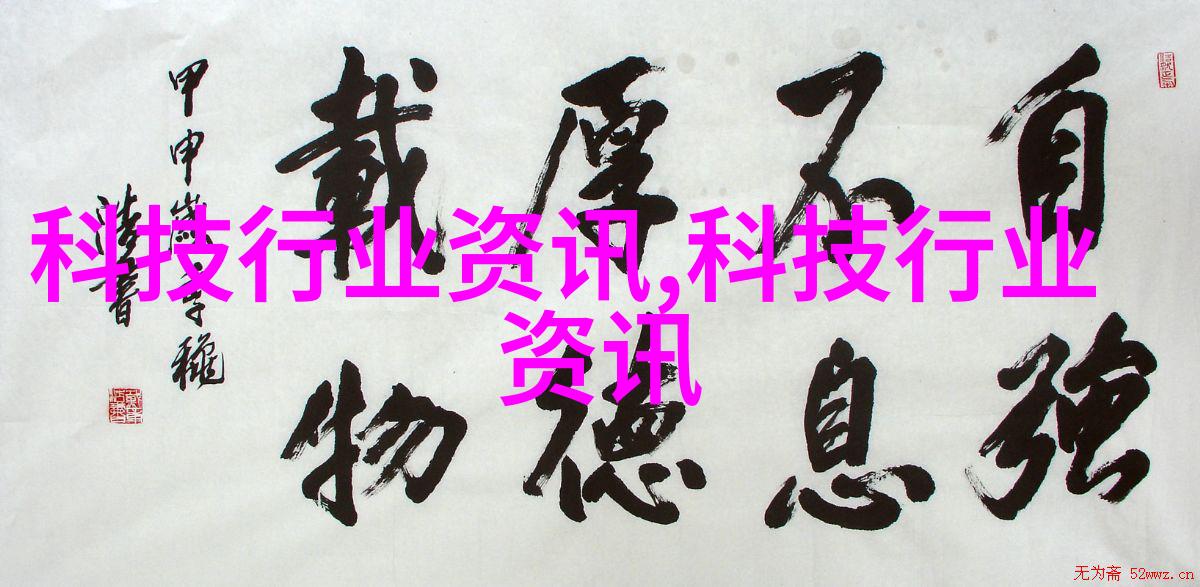 科技行业资讯,科技行业
资讯
自強
不息
厚德
載物
甲申
无为斋 52wwz.cn